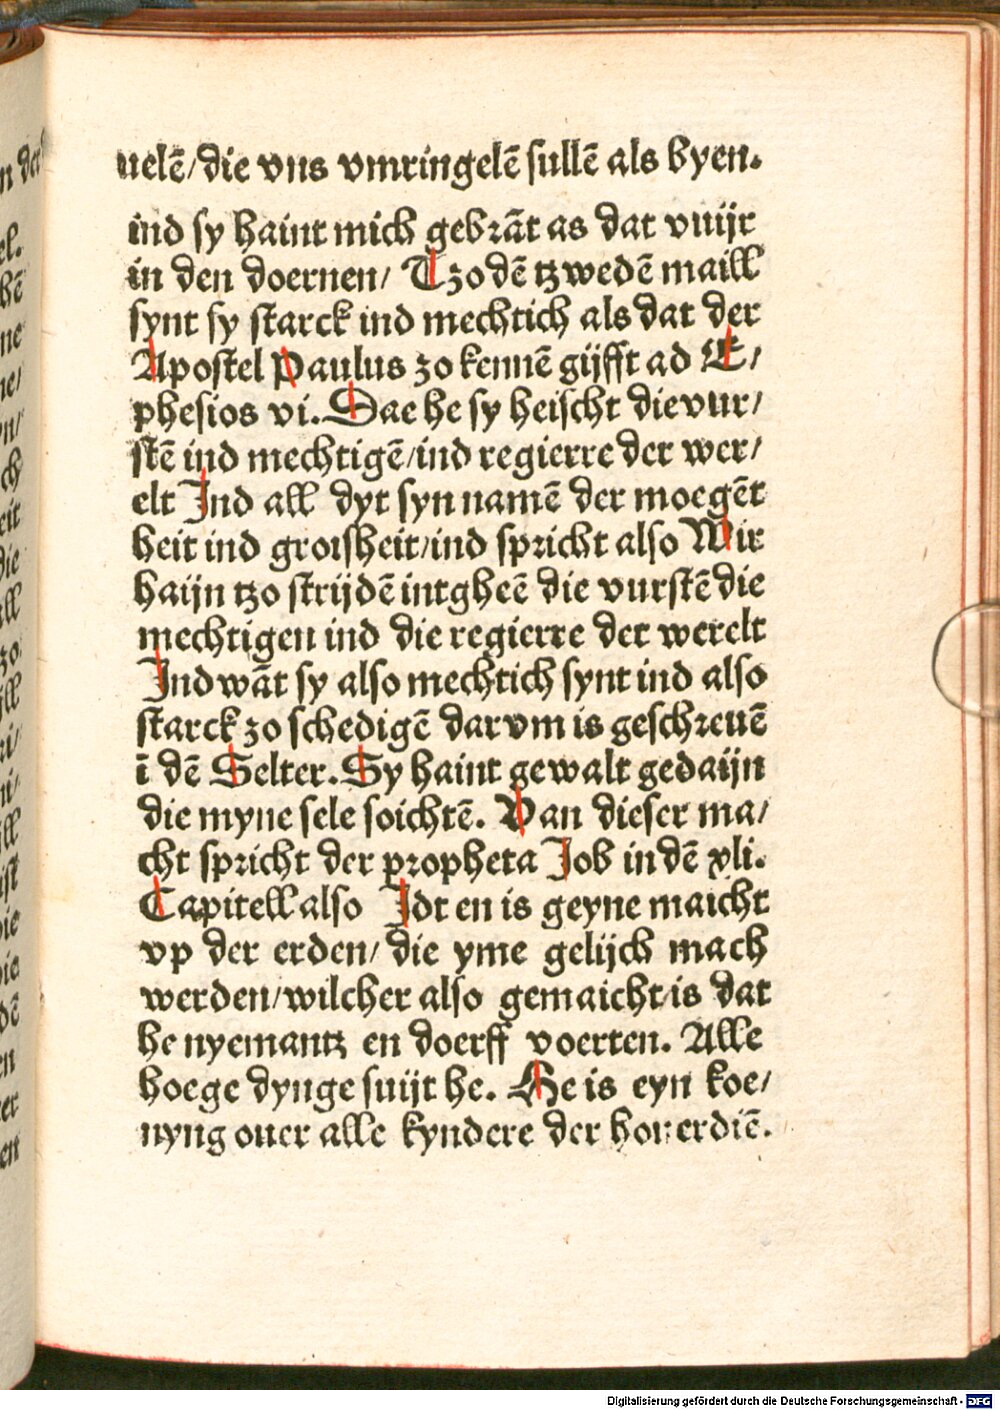 uelē/die vns vmringelē sullē als byen.
ind sy haint mich gebrāt as dat vuijr
in den doernen/ Tzo dē tzwedē maill
synt sy starck ind mechtich als dat der
Apostel Paulus zo kennē gijfft ad E/
phesios vi. Dae he sy heischt die vur/
stē ind mechtigē/ind regierre der wer/
elt Ind all dyt syn namē der moegēt
heit ind groisheit/ind spricht also Wir
haijn tzo strijdē intgheē die vurstē die
mechtigen ind die regierre der werelt
Ind wāt sy also mechtich synt ind also
starck zo schedigē darvm is geschreuē
ī dē Selter. Sy haint gewalt gedaijn
die myne sele soichtē. Van dieser ma/
cht spricht der propheta Job in dē xli.
Capitell also Idt en is geyne maicht
vp der erden/ die yme gelijch mach
werden/wilcher also gemaicht is dat
he nyemantz en doerff voerten. Alle
hoege dynge suijt he. He is eyn koe/
nyng ouer alle kyndere der houerdiē.
Digitalisierung gefördert durch die Deutsche Forschungsgemeinschaft - DFG